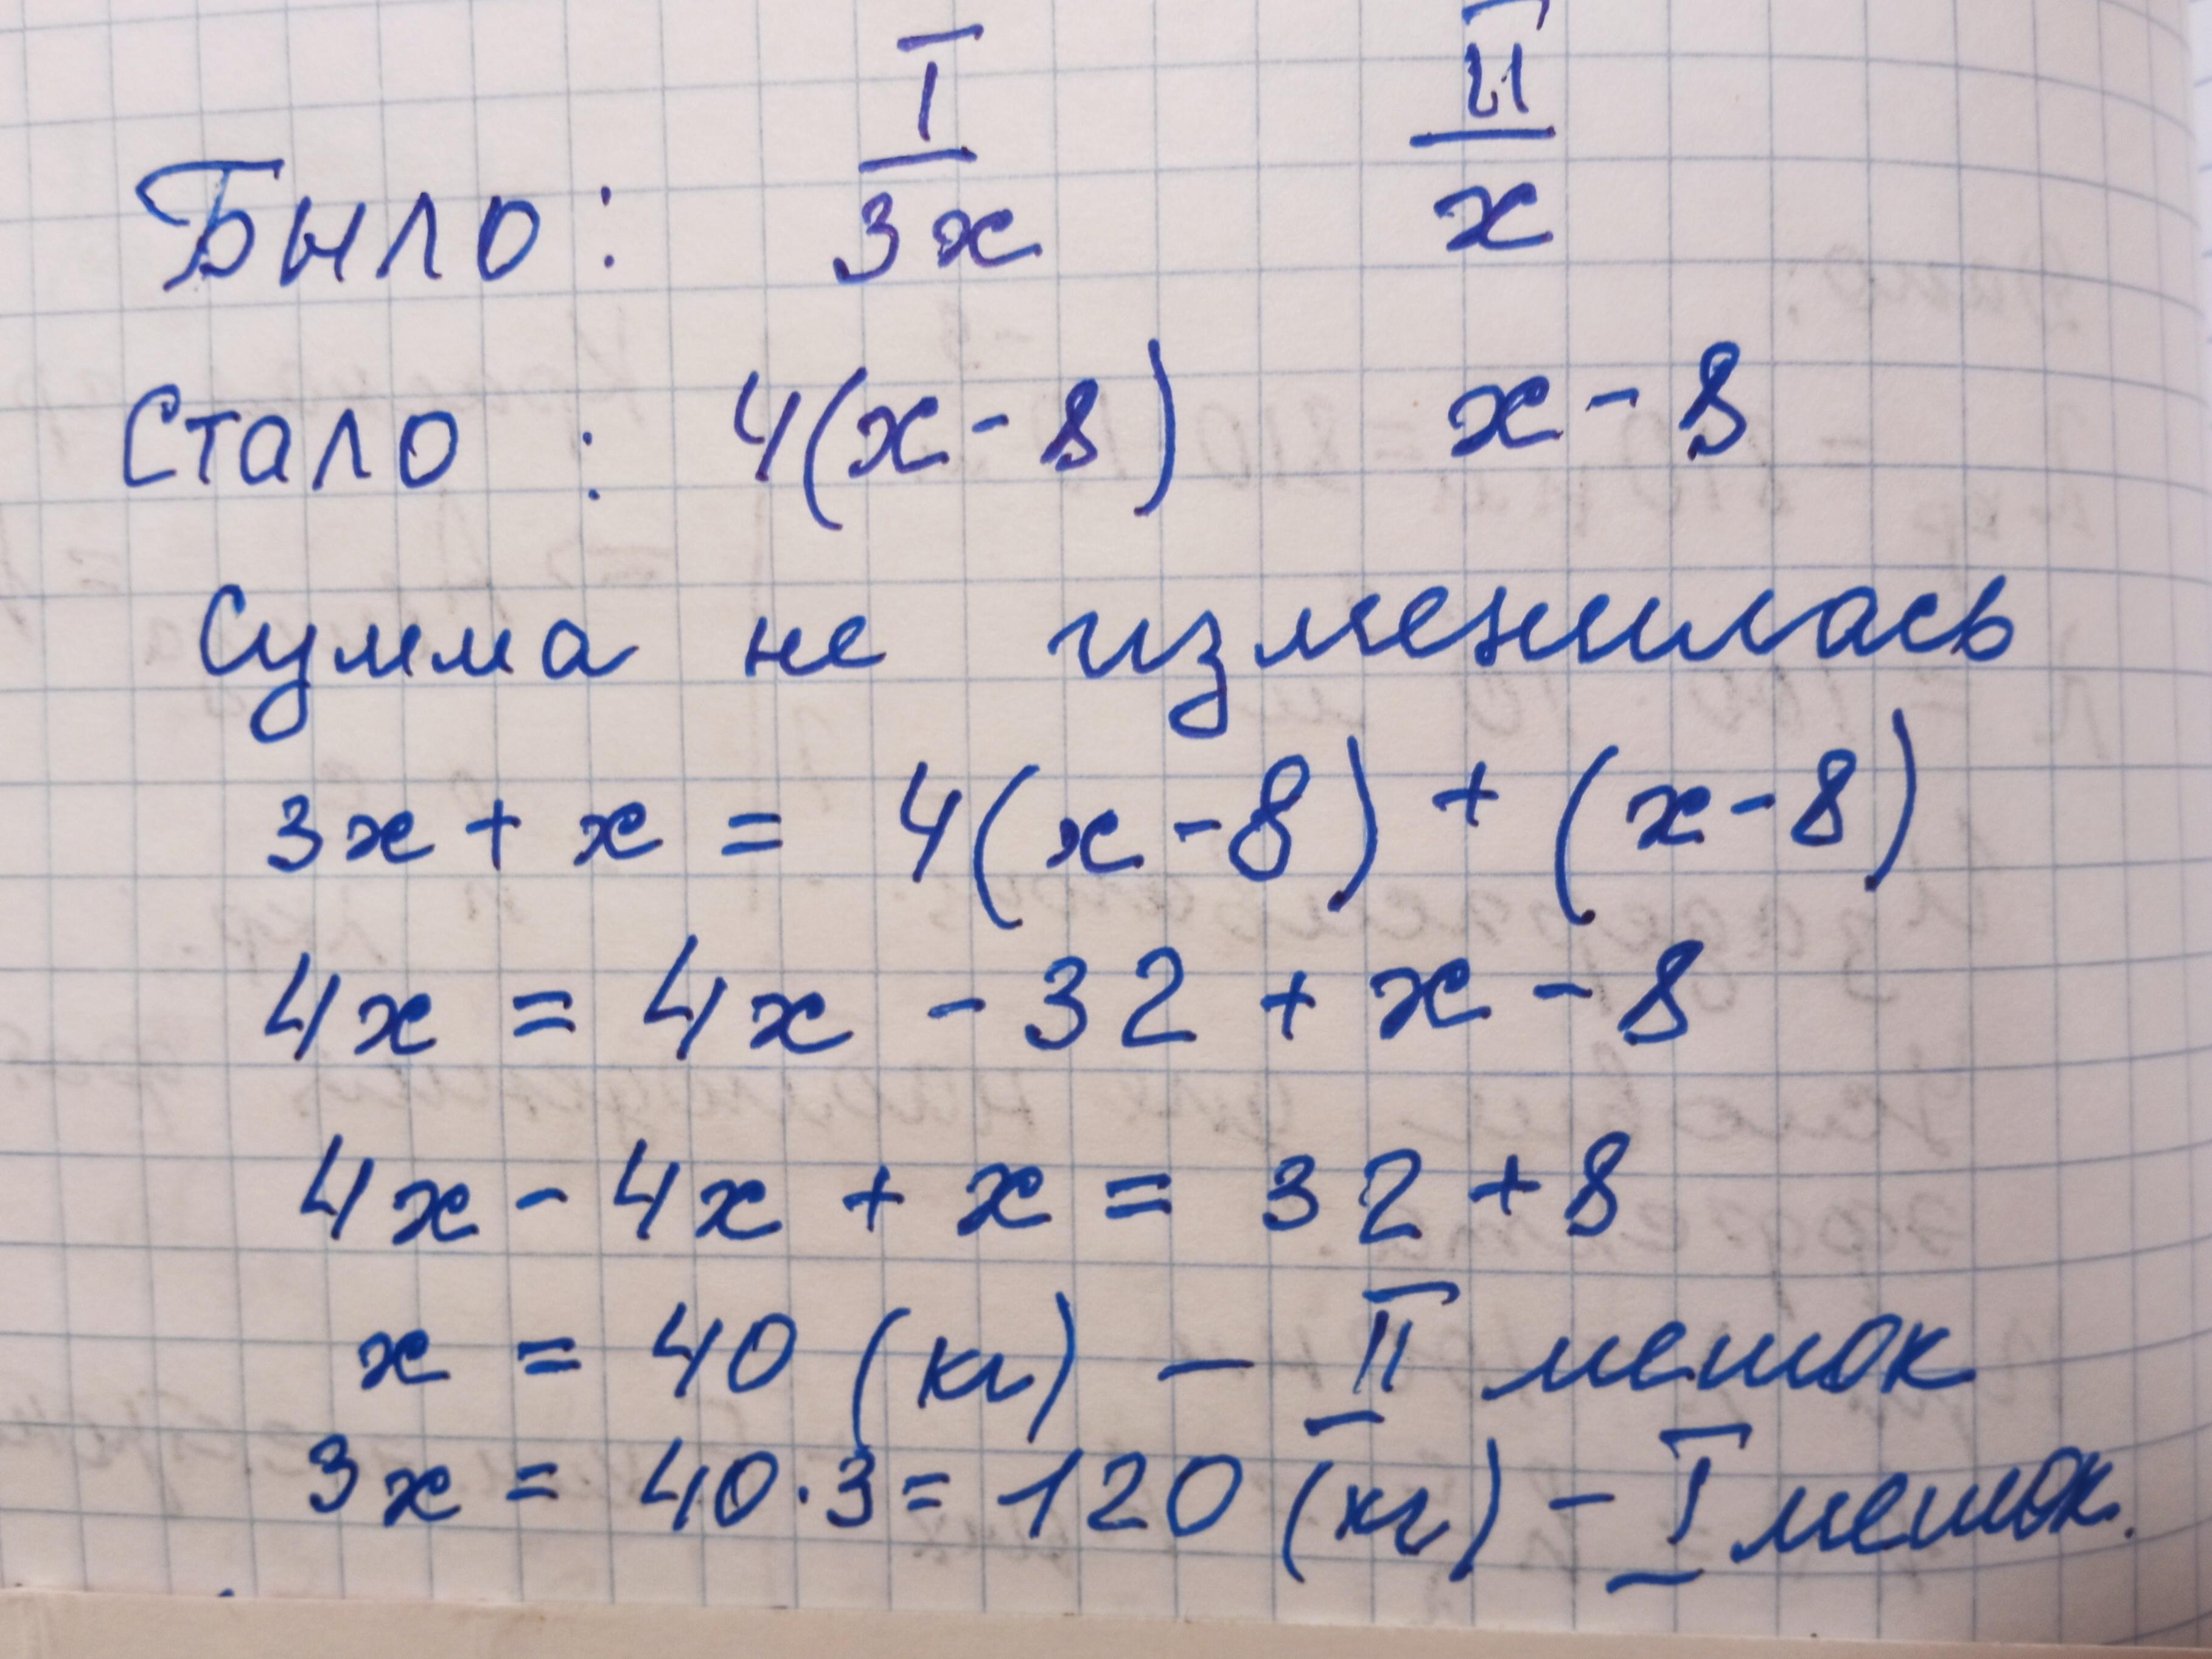 I II
Было: 3x x
Стало: 4(x-8) x-8
Сумма не изменилась
3x+x = 4(x-8) + (x-8)
4x = 4x - 32 + x - 8
4x - 4x + x = 32 + 8
x = 40 (кг) — II мешок
3x = 40·3 = 120 (кг) - I мешок.